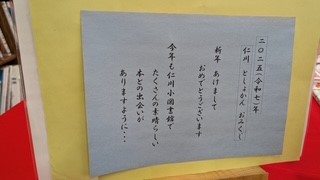 二〇二五(令和七)年
仁川 としょかん おみくじ
新年 あけまして
おめでとうございます
今年も仁川小図書館で
たくさんの素晴らしい
本との出会いが
ありますように・・・